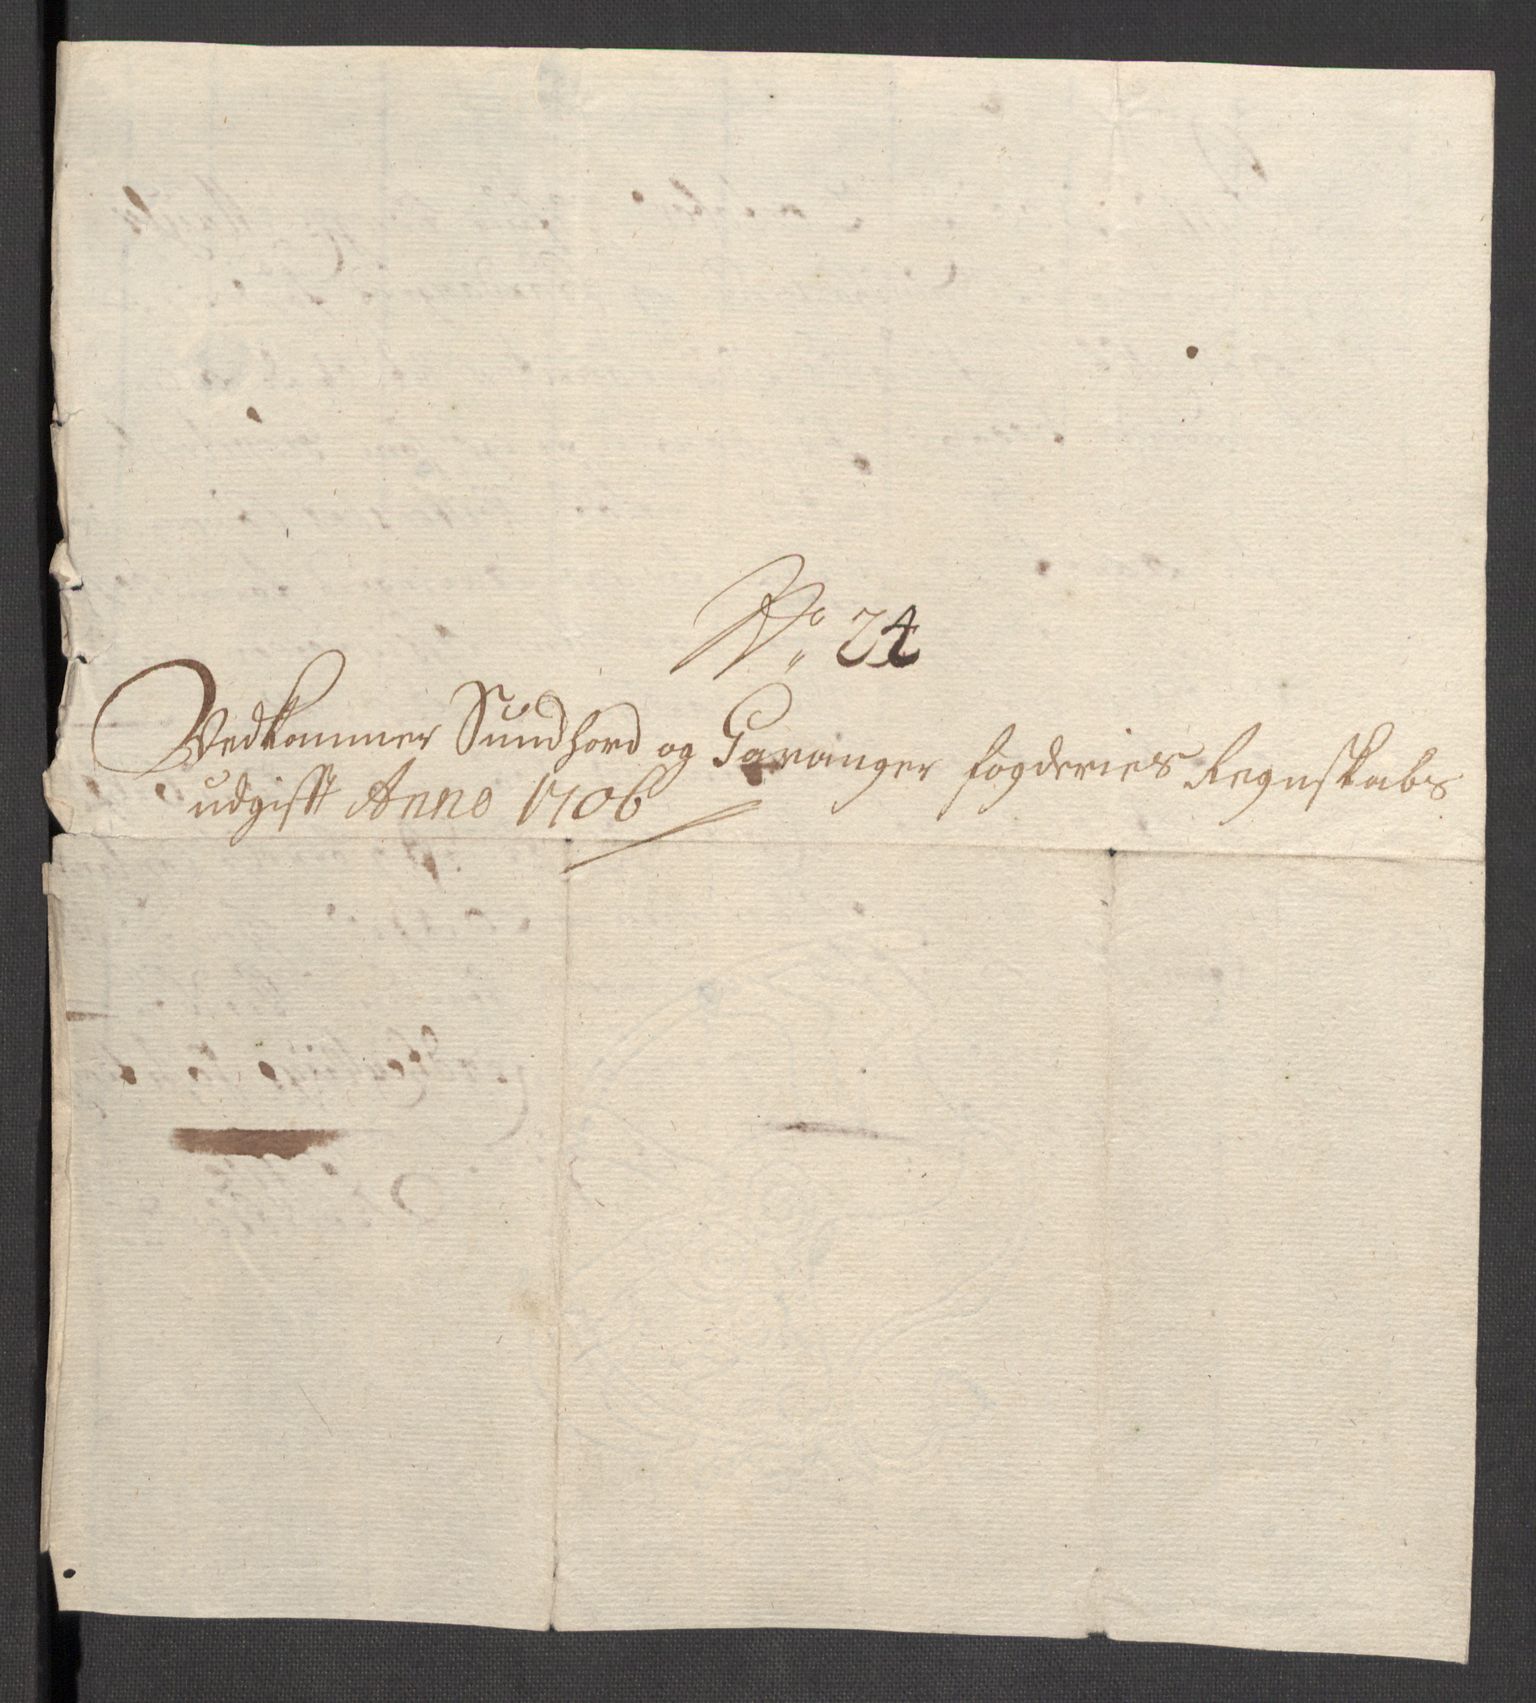 No 24
Vedkommer Sundhord og Hardanger fogderies Regnskabs
udgifft Anno 1706